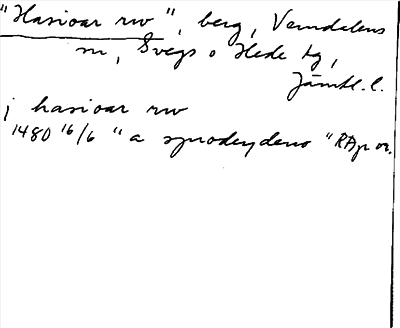 "Hasioar rw", berg, Vemdalens
sn, Svegs o Hede tg,
Jämtl. l.
j hasioar rw
1480 16/6 "a synodeydeno" RAp or.